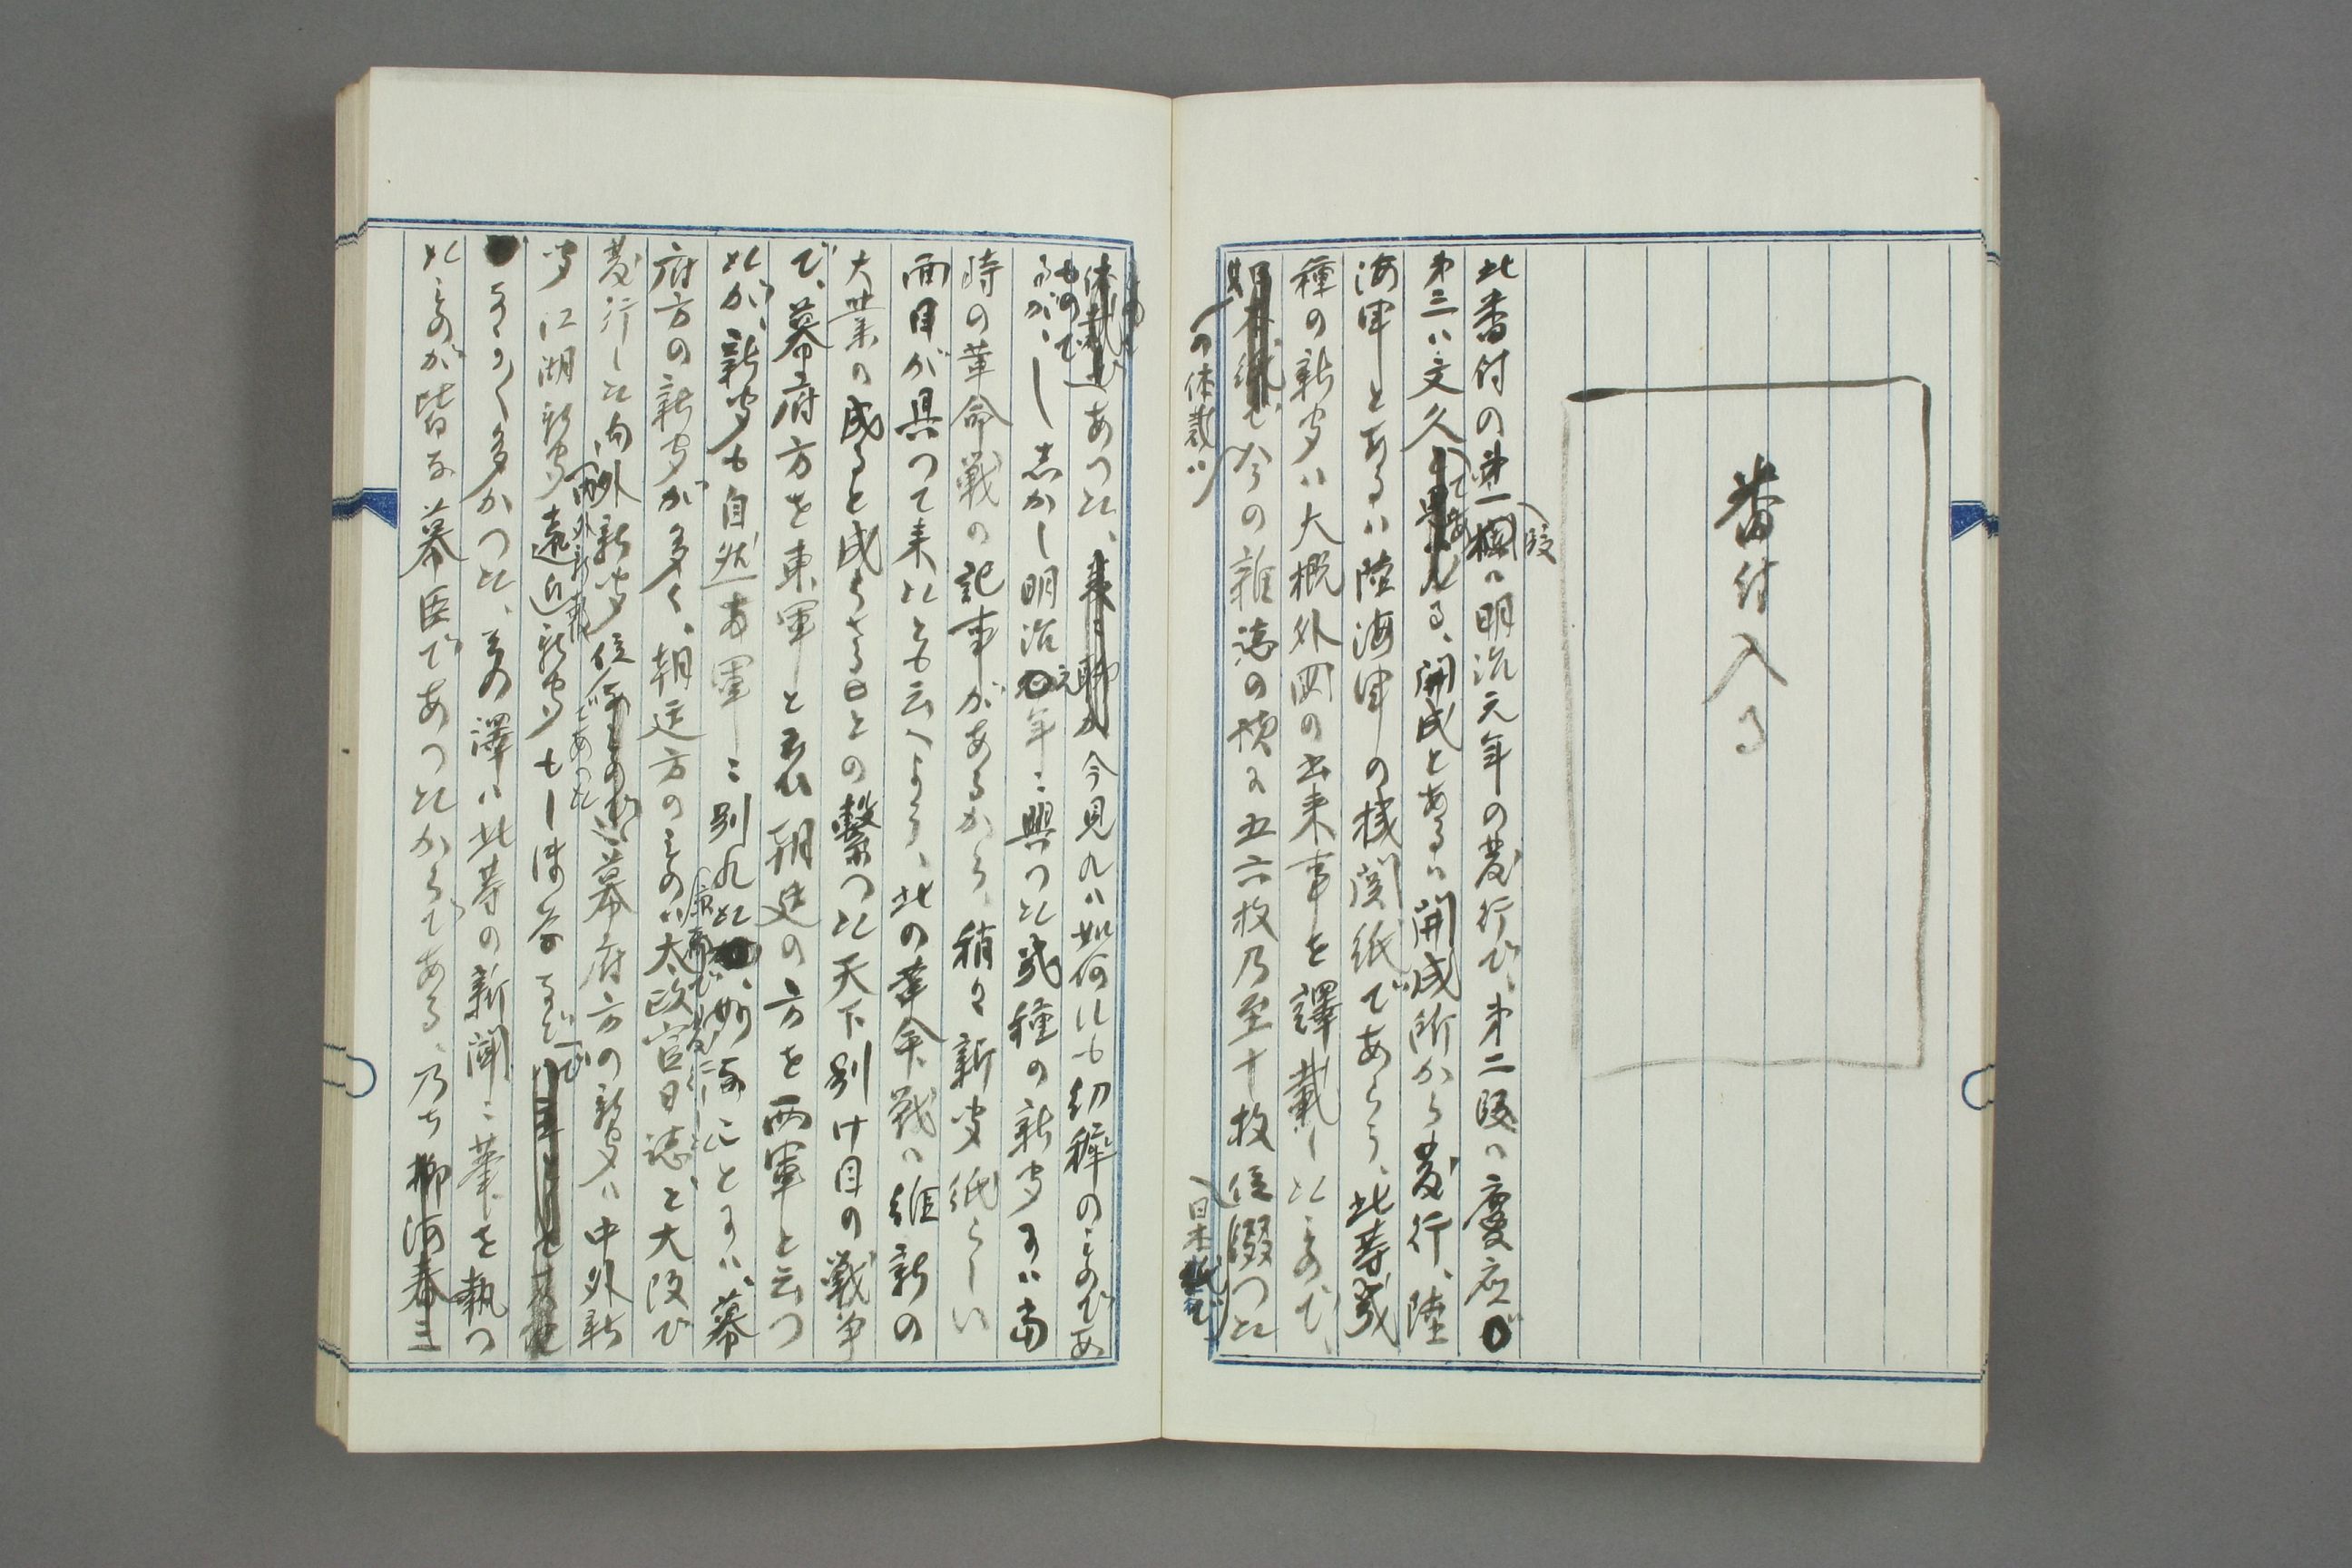 番付入る
此番付の第一段ハ明治元年の発行で、第二段ハ慶応で
第三ハ文久である、開成とあるハ開成所から発行、陸
海軍とあるハ陸海軍の機関紙であらう、此等幾
種の新聞ハ大概外国の出来事を譯載したもので、
の体裁ハ
今の雑誌の様に五六枚乃至十枚位綴つた
日本紙で
ものであつた、今見れハ如何にも幼穉のものであ
るが、しかし明治元年ニ興つた幾種の新聞にハ当
時の革命戦の記事があるから、稍々新聞紙らしい
面目が具つて来たとも云へよう、此の革命戦ハ維新の
大業の成ると成らざるとの繋つた天下別け目の戦争
で、幕府方を東軍と云ひ朝廷の方を西軍と云つ
たが、新聞も自然両軍ニ別れた、妙なことにハ、幕
府方の新聞が多く、朝廷方のものハ太政官日誌と大阪で
発行した内外新聞位であつた、幕府方の新聞ハ中外新
聞江湖新聞遠近新聞もしほ草まで
なかなか多かつた、其の譯ハ此等の新聞ニ筆を執つ
たものが皆な幕臣であつたからである、乃ち柳河春三